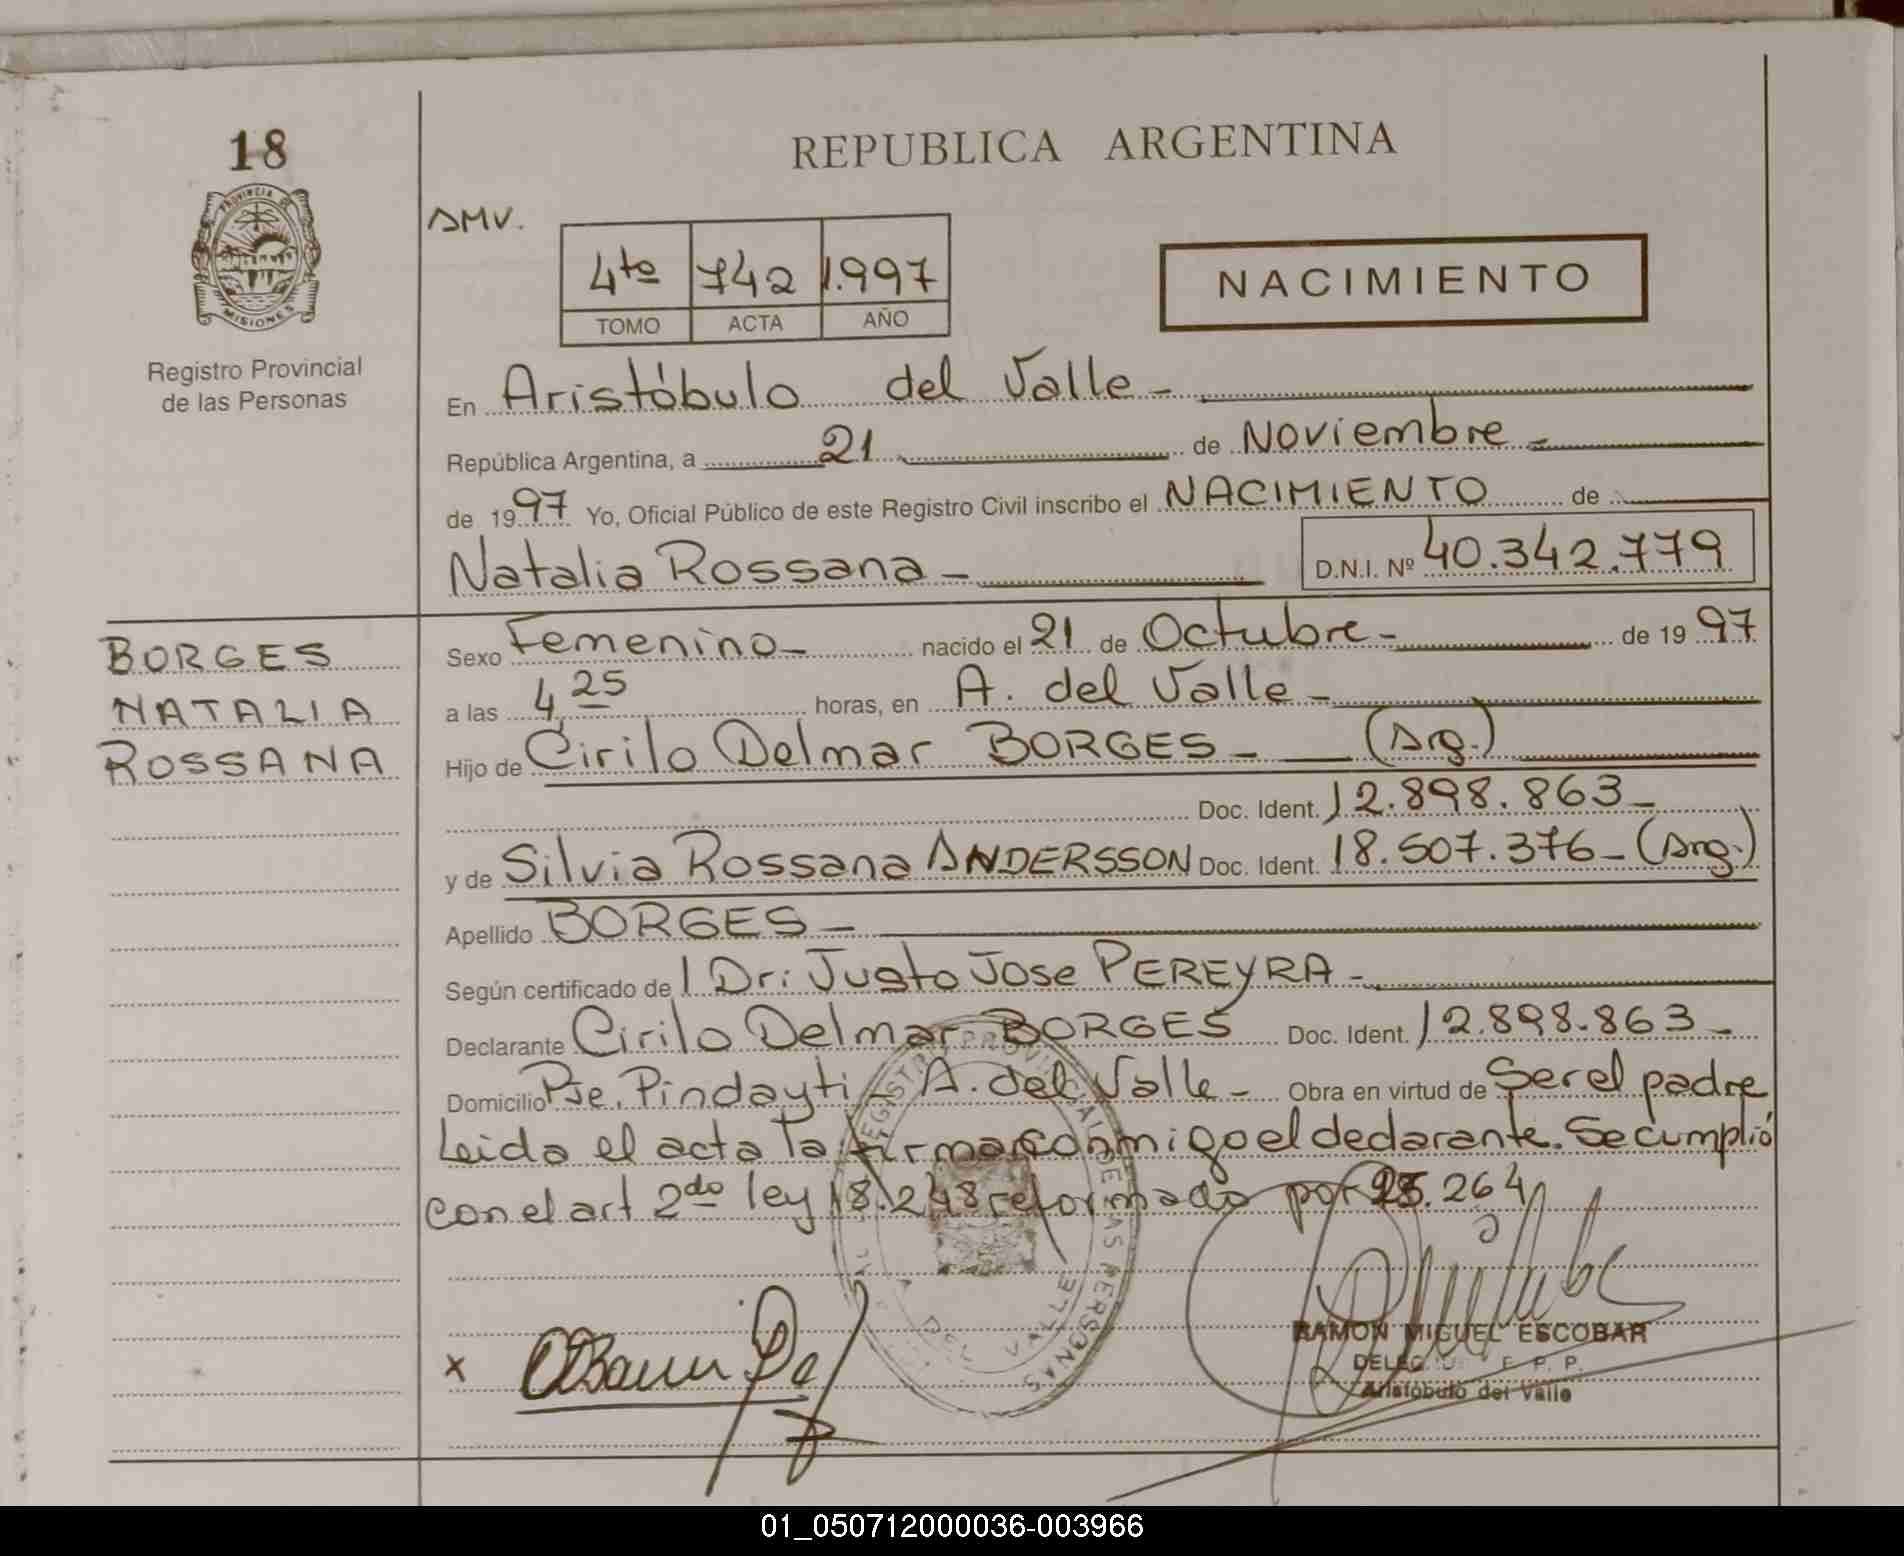 18
PROVINCIA DE
MISIONES
Registro Provincial
de las Personas
BORGES
NATALIA
ROSSANA
REPUBLICA ARGENTINA
AMV.
4to 742 1.997
TOMO ACTA AÑO
NACIMIENTO
En Aristóbulo del Valle-
República Argentina, a 21 de Noviembre-
de 1997 Yo, Oficial Público de este Registro Civil inscribo el NACIMIENTO de
Natalia Rossana- D.N.I. Nº 40.342.779
Sexo Femenino- nacido el 21 de Octubre- de 1997
a las 4,25 horas, en A. del Valle-
Hijo de Cirilo Delmar BORGES- (Arg.)
Doc. Ident. 12.898.863-
y de Silvia Rossana ANDERSSON Doc. Ident. 18.507.376-(Arg.)
Apellido BORGES-
Según certificado de l Dr: Justo Jose PEREYRA-
Declarante Cirilo Delmar BORGES Doc. Ident. 12.898.863-
Domicilio Pje. Pindayti- A. del Valle- Obra en virtud de Ser el padre
Leida el acta la firma conmigo el declarante. Se cumplió
con el art 2do ley 18.248 reformado por 23.264
REGISTRO PROVINCIAL DE LAS PERSONAS
A. DEL VALLE
x
RAMON MIGUEL ESCOBAR
Aristóbulo del Valle
01_050712000036-003966